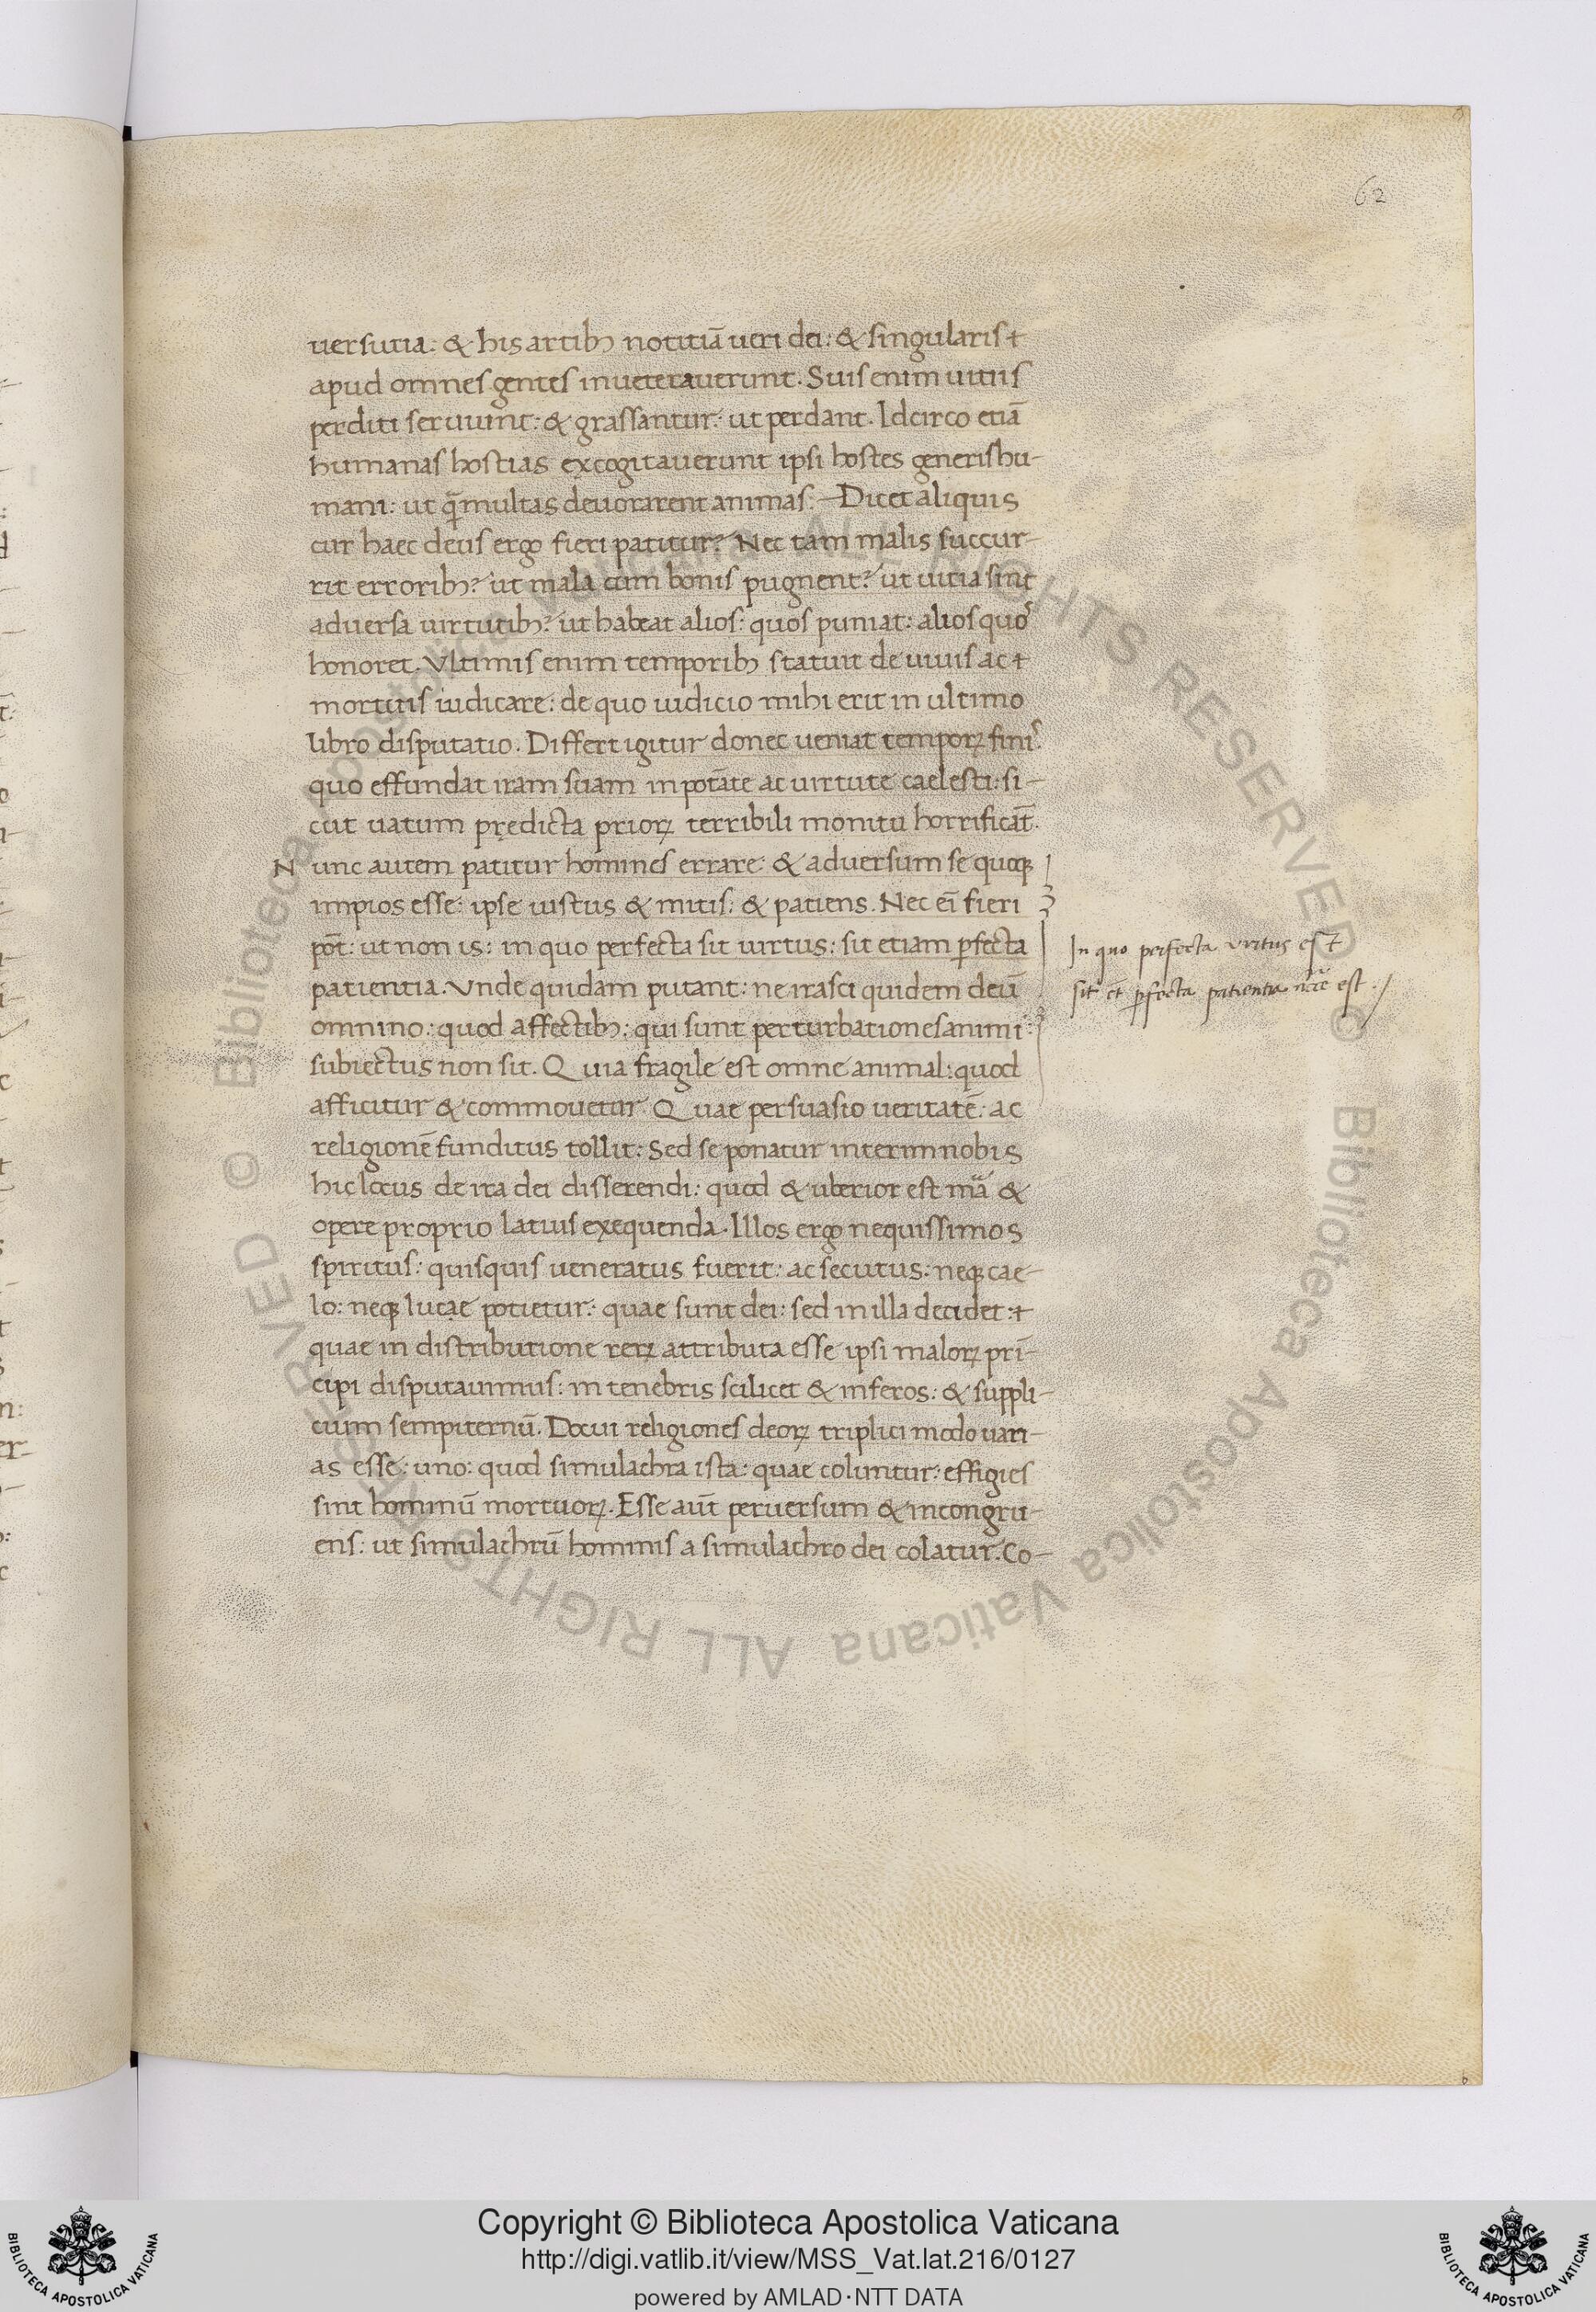 62
uersutia: & his artibꝫ notitiā ueri dei: & singularis +
apud omnes gentes inueterauerunt. Suis enim uitiis
perditi seruiunt: & grassantur: ut perdant. Idcirco etiā
humanas hostias excogitauerunt ipsi hostes generis hu-
mani: ut q̄multas deuorarent animas. – Dicet aliquis
cur haec deus ergo fieri patitur? Nec tam malis succur-
rit erroribꝫ? ut mala cum bonis pugnent? ut uitia sint
aduersa uirtutibꝫ? ut habeat alios: quos puniat: alios quos
honoret. Vltimis enim temporibꝫ statuit de uiuis ac +
mortuis iudicare: de quo iudicio mihi erit in ultimo
libro disputatio. Differt igitur donec ueniat temporꝝ finis.
quo effundat iram suam in potāte ac uirtute caelesti: si-
cut uatum prędicta priorꝝ terribili monitu horrificāt.
Nunc autem patitur homines errare: & aduersum se quoqꝫ
impios esse: ipse iustus & mitis: & patiens. Nec eī fieri
pōt: ut non is: in quo perfecta sit uirtus: sit etiam ꝑfecta
In quo perfecta virtus est
patientia. Vnde quidam putant: ne irasci quidem deū
sit et̄ ꝑfecta patientia n̄cē est ./
omnino: quod affectibꝫ: qui sunt perturbationes animi:
subiectus non sit. Quia fragile est omne animal: quod
afficitur & commouetur. Quae persuasio ueritatē: ac
religionē funditus tollit: Sed se ponatur interim nobis
hic locus de ira dei disserendi: quod & uberior est mā &
opere proprio latius exequenda. Illos ergo nequissimos
spiritus: quisquis ueneratus fuerit: ac secutus: neqꝫ cae-
lo: neqꝫ lucae potietur: quae sunt dei: sed in illa decidet: +
quae in distributione rerꝝ attributa esse ipsi malorꝝ prī-
cipi disputauimus: in tenebris scilicet & inferos: & suppli-
cium sempiternū. Docui religiones deorꝝ triplici modo uari-
as esse: uno: quod simulachra ista: quae coluntur: effigies
sint hominū mortuorꝝ. Esse aūt peruersum & incongru-
ens: ut simulachrū hominis a simulachro dei colatur. Co-
© Biblioteca Apostolica Vaticana ALL RIGHTS RESERVED
© Biblioteca Apostolica Vaticana ALL RIGHTS RESERVED
Copyright © Biblioteca Apostolica Vaticana
http://digi.vatlib.it/view/MSS_Vat.lat.216/0127
powered by AMLAD·NTT DATA
BIBLIOTECA APOSTOLICA VATICANA
BIBLIOTECA APOSTOLICA VATICANA